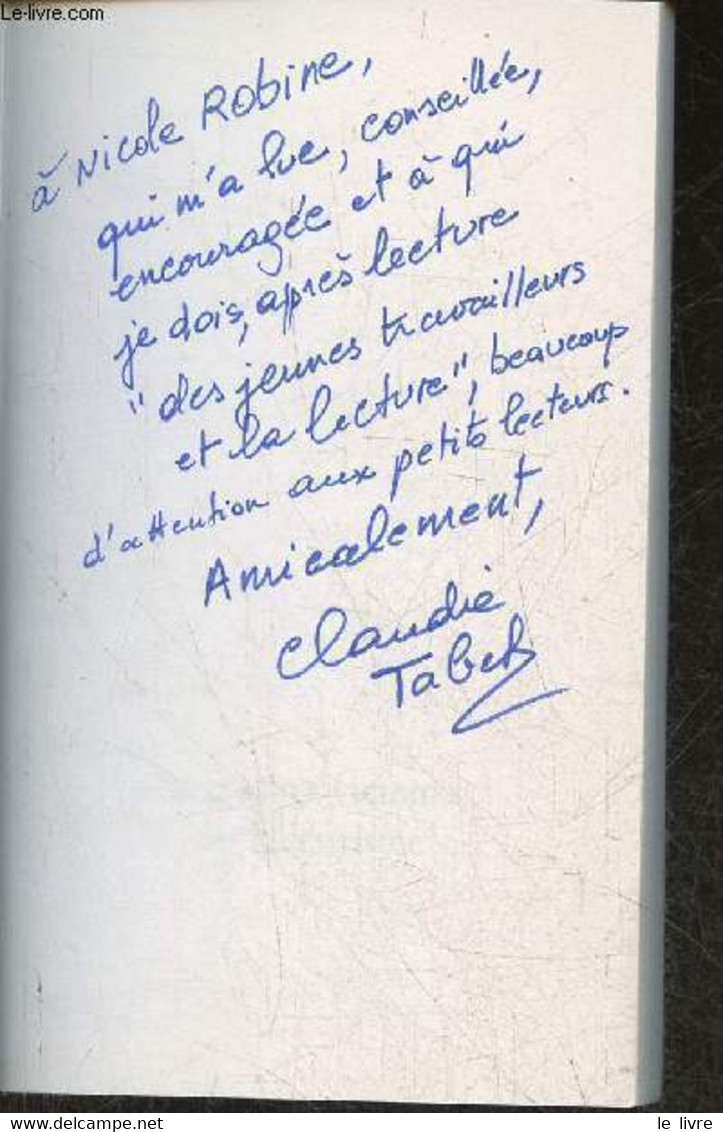 Le-livre.com
à Nicole Robine,
qui m'a lue, conseillée,
encouragée et à qui
je dois, après lecture
"des jeunes travailleurs
et la lecture", beaucoup
d'attention aux petits lecteurs.
Amicalement,
Claudie
Tabet
www.Le-livre.com
le livre